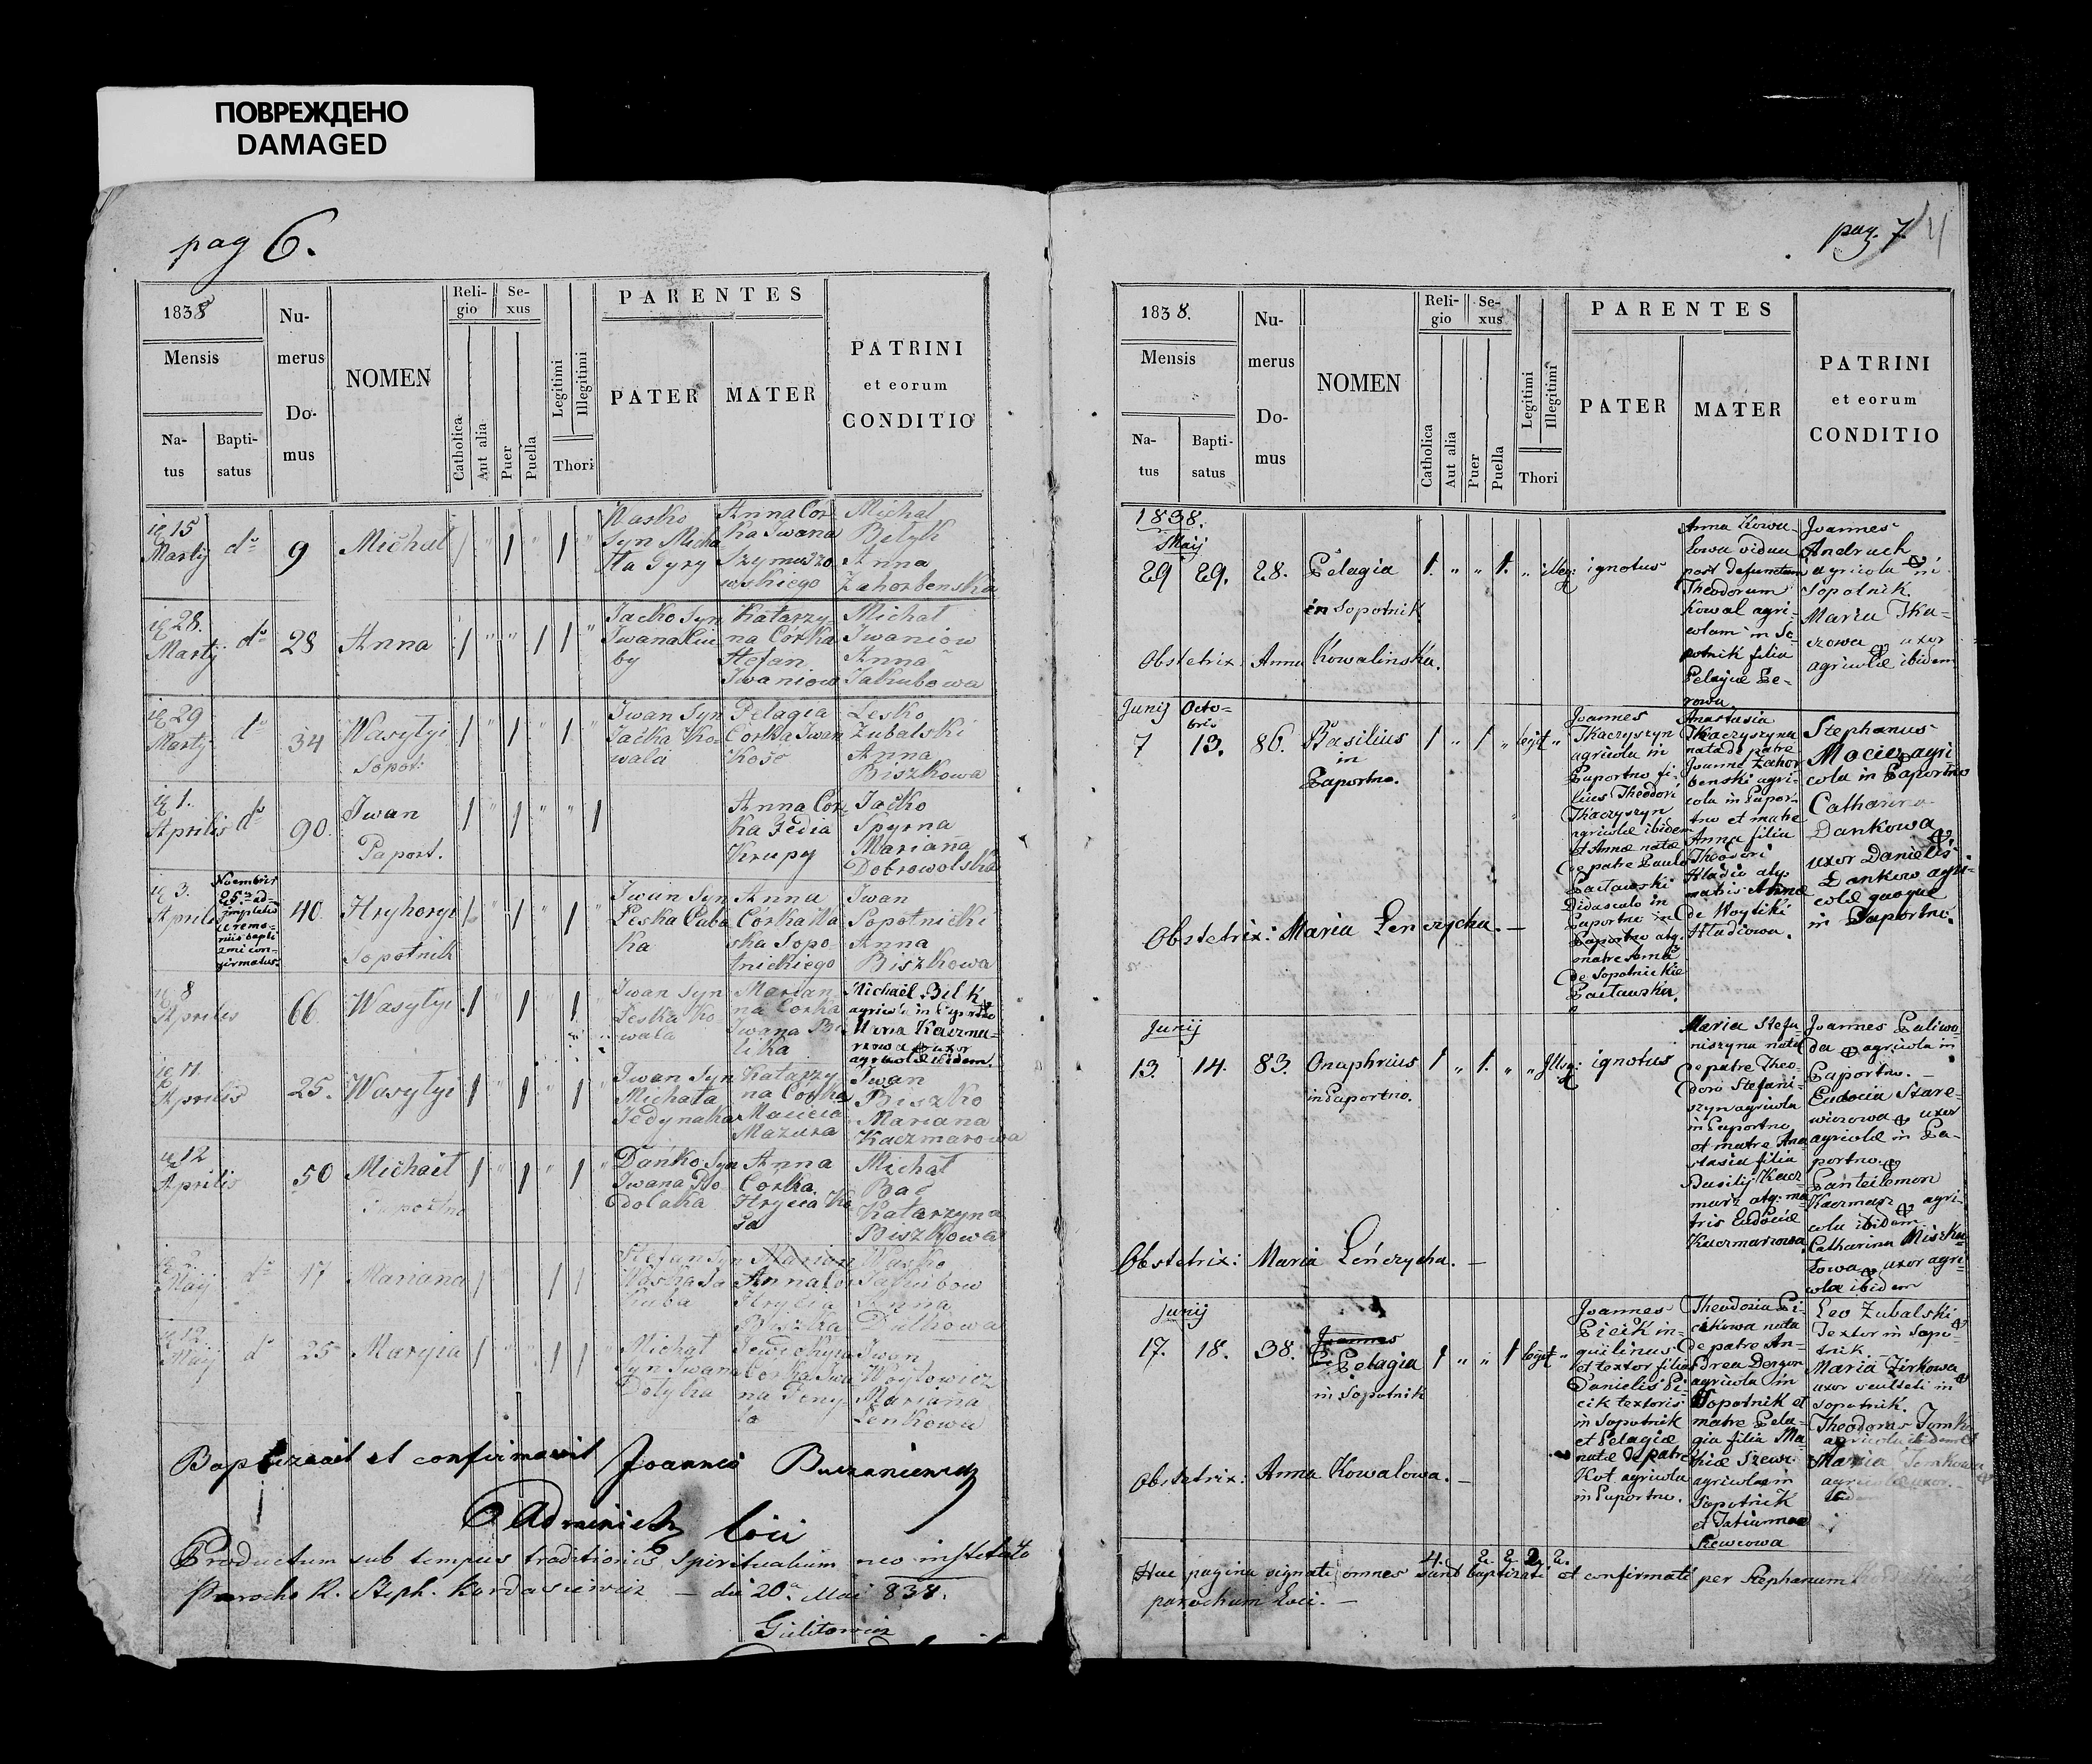 ПОВРЕЖДЕНО
DAMAGED
pag 6.
1838
Mensis
Na-
tus
Bapti-
satus
Nu-
merus
Do-
mus
NOMEN
Reli-
gio
Catholica
Aut alia
Se-
xus
Puer
Puella
Legitimi
Illegitimi
Thori
PARENTES
PATER
MATER
PATRINI
et eorum
CONDITIO
15
Martij
do
9
Michał
Wasko
Syn Micha
ła Gyry
Anna Cor
ka Iwana
Szymuszo
wskiego
Michał
Bełyk
Anna
Zahorbenska
28.
Martij
do
28
Anna
Jacko Syn
Iwana
by
Katarzy
na Córka
Stefan
Iwaniow
Michał
Iwaniow
Anna
Jakubowa
29
Martij
do
34
Wasylyi
Sopot:
Iwan Syn
Jacka Ko-
wala
Pelagia
Corka Iwan
Lesko
Zubalski
Anna
Biszkowa
1.
Aprilis
do
90.
Iwan
Paport.
Anna Cór
ka Fedia
Krupy
Jacko
Spyrna
Mariana
Dobrowolska
3.
Aprilis
Novembris
25. ad-
impletis
ceremo-
niis bapti
zmi con-
firmatus.
40.
Hryhoryi
Sopotnik
Iwan Syn
Leska Caba
ka
Anna
Córka Wa
ska Sopo-
tnickiego
Iwan
Sopotnicki
Anna
Biszkowa
8
Aprilis
66.
Wasylyi
Iwan Syn
Leska Ko-
wala
Marian
na Corka
Iwana Bi
lika
Michaël Bilk
agricola in Paportno
Maria Kaczma-
rzowa uxor
agricolæ ibidem.
11.
Aprilis
25.
Wasylyi
Iwan Syn
Michała
Jedynaka
Katarzy
na Córka
Macieia
Mazura
Iwan
Biszko
Mariana
Kaczmarowa
12
Aprilis
50
Michaił
Paportno
Danko Syn
Iwana Po
dolaka
Anna
Corka
Hrycia Ko
Michał
Bac
Katarzyna
Biszkowa
Maij
do
17
Mariana
Stefan Syn
Waska Ja
kuba
Marian
Anna Cor
Hrycia
Biszka
Wasko
Jakubow
Anna
Dutkowa
12
Maij
do
25
Maryia
Michał
Syn Iwana
Corka Iwa
Iwan
Woytowicz
Mariana
Lenkowa
Baptizavit et confirmavit Joannes
Administr loci
Productum sub tempus traditionis spiritualium neo instituto
Parocho R. Steph. Kordasiewicz — die 20a Mai 838.
pag. 7
1838.
Mensis
Na-
tus
Bapti-
satus
Nu-
merus
Do-
mus
NOMEN
Reli-
gio
Catholica
Aut alia
Se-
xus
Puer
Puella
Legitimi
Illegitimi
Thori
PARENTES
PATER
MATER
PATRINI
et eorum
CONDITIO
1838.
Maij
29
29.
28.
Pelagia
in Sopotnik
1.
1.
illeg:
ignotus
Anna Kowa-
lowa vidua
post defunctum
Theodorum
Kowal agri-
colam in So-
potnik filia
Pelagiæ Pe-
rowa.
Joannes
Andruch
agricola in
Sopotnik.
Maria Tka-
czowa uxor
agricolæ ibidem
Obstetrix: Anna Kowalinska.
Junij
7
Octo-
bris
13.
86.
Basilius
in
Paportno.
1
1
legit
Joannes
Tkaczyszyn
agricola in
Paportno fi-
lius Theodori
Tkaczyszyn
agricolæ ibidem
et Annæ natæ
de patre Paulo
Paclawski
Didascalo in
Paportno in
Paportno atq.
matre Anna
de Sopotnickie
Paclawska.
Anastasia
Tkaczyszyna
nata de patre
Joanne Zahor
benski agri-
cola in Papor-
tno et matre
Anna filia
Theodori
Hladio atq.
matris Annæ
de Woytiki
Hladiowa.
Stephanus
Maciez agri-
cola in Paportno
Catharina
Dankowa
uxor Danielis
Dankow agri-
colæ quoque
in Paportno.
Obstetrix: Maria Lenczycha. —
Junij
13.
14.
83.
Onuphrius
in Paportno.
1
1.
Illeg:
ignotus
Maria Stefa-
niszyna nata
de patre Theo-
doro Stefani-
szyn agricola
in Paportno
et matre Ana
stasia filia
Basilij Kacz-
marz atq: ma-
tris Eudociæ
Kaczmarzowa.
Joannes Paliwo
da agricola in
Paportno. —
Eudocia Szare-
wiczowa uxor
agricolæ in Pa-
portno.
Panteilemon
Kaczmarz agri-
cola ibidem
Catharina Misku-
lowa uxor agri-
colæ ibidem
Obstetrix: Maria Leńczycha. —
Junij
17.
18.
38.
Joannes
Pelagia
in Sopotnik
1
1
legit
Joannes
Picik in-
quilinus
et textor filius
Danielis Pi-
cik textoris
in Sopotnik
et Pelagiæ
natæ de patre
Kot agricola
in Paportno.
Theodosia Pi-
cikowa nata
de patre An-
drea Dergon
agricola in
Sopotnik et
matre Pela-
gia filia Ma-
thiæ Szewc
agricolæ in
Sopotnik
et Tatiannæ
Szewcowa
Leo Zubalski
Textor in Sopo-
tnik
Maria Zirkowa
uxor sculteti in
Sopotnik.
Theodorus Tomko
agricola ibidem et
Maria Tomkowa
agricolæ uxor. —
ibidem
Obstetrix: Anna Kowalowa. —
4. 2. 2. 2. 2.
Hac pagina signati omnes sunt baptizati et confirmati per Stephanum
parochum loci. —